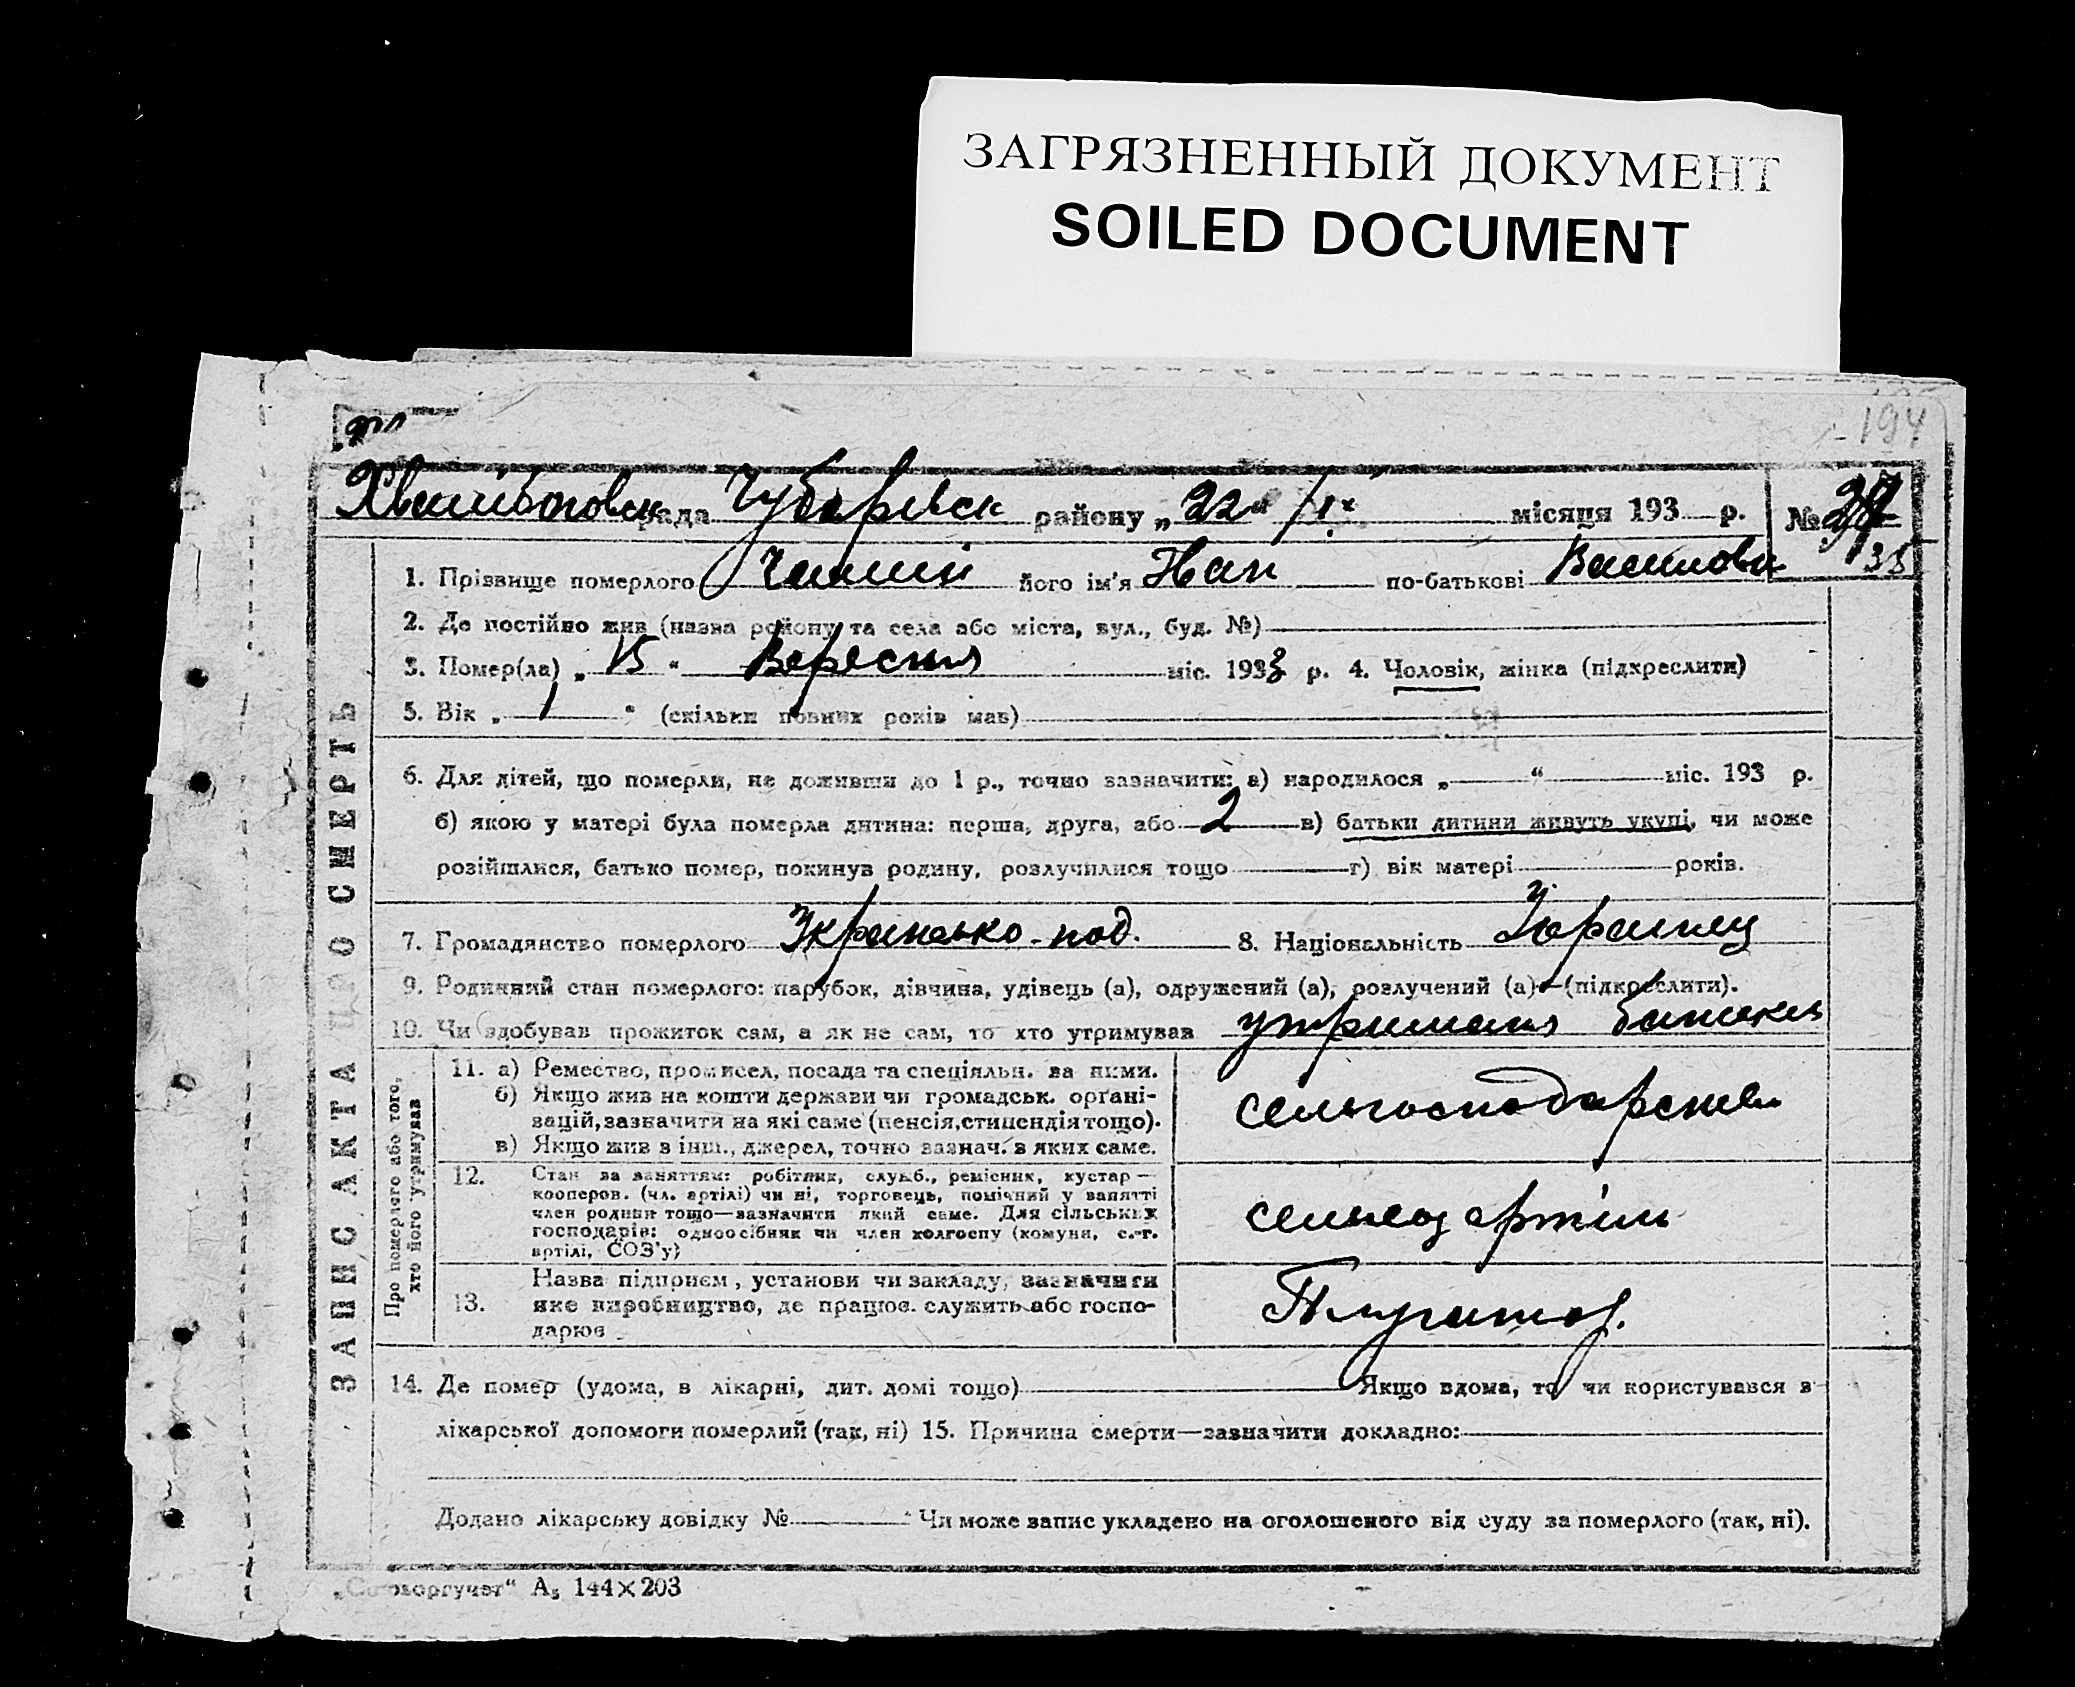 ЗАГРЯЗНЕННЫЙ ДОКУМЕНТ
SOILED DOCUMENT
194
рада Чубаревск району „22“ місяця 193 р. №
ЗАПИС АКТА ПРО СМЕРТЬ
1. Прізвище померлого його ім'я Іван по-батькові
2. Де постійно жив (назва району та села або міста, вул., буд. №)
3. Помер(ла) „15“ Вересня міс. 1933 р. 4. Чоловік, жінка (підкреслити)
5. Вік „1“ (скільки повних років мав)
6. Для дітей, що померли, не доживши до 1 р., точно зазначити: а) народилося „ “ міс. 193 р.
б) якою у матері була померла дитина: перша, друга, або 2 в) батьки дитини живуть укупі, чи може
розійшлися, батько помер, покинув родину, розлучилися тощо г) вік матері років.
7. Громадянство померлого под. 8. Національність
9. Родинний стан померлого: парубок, дівчина, удівець (а), одружений (а), розлучений (а)—(підкреслити).
10. Чи здобував прожиток сам, а як не сам, то хто утримував
Про померлого або того, хто його утримував
11. а) Ремество, промисел, посада та спеціяльн. за ними.
б) Якщо жив на кошти держави чи громадськ. орґані-
зацій, зазначити на які саме (пенсія, стипендія тощо).
в) Якщо жив з інш., джерел, точно зазнач. з яких саме.
12. Стан за заняттям: робітник, служб., ремісник, кустар—
кооперов. (чл. артілі) чи ні, торговець, помічний у занятті
член родини тощо—зазначити який саме. Для сільських
господарів: одноосібник чи член колгоспу (комуни, с.-г.
артілі, СОЗ'у)
артіль
13. Назва підприєм., установи чи закладу, зазначити
яке виробництво, де працює, служить або госпо-
дарює
14. Де помер (удома, в лікарні, дит. домі тощо) Якщо вдома, то чи користувався з
лікарської допомоги померлий (так, ні) 15. Причина смерти—зазначити докладно:
Додано лікарську довідку № Чи може запис укладено на оголошеного від суду за померлого (так, ні).
А5 144×203